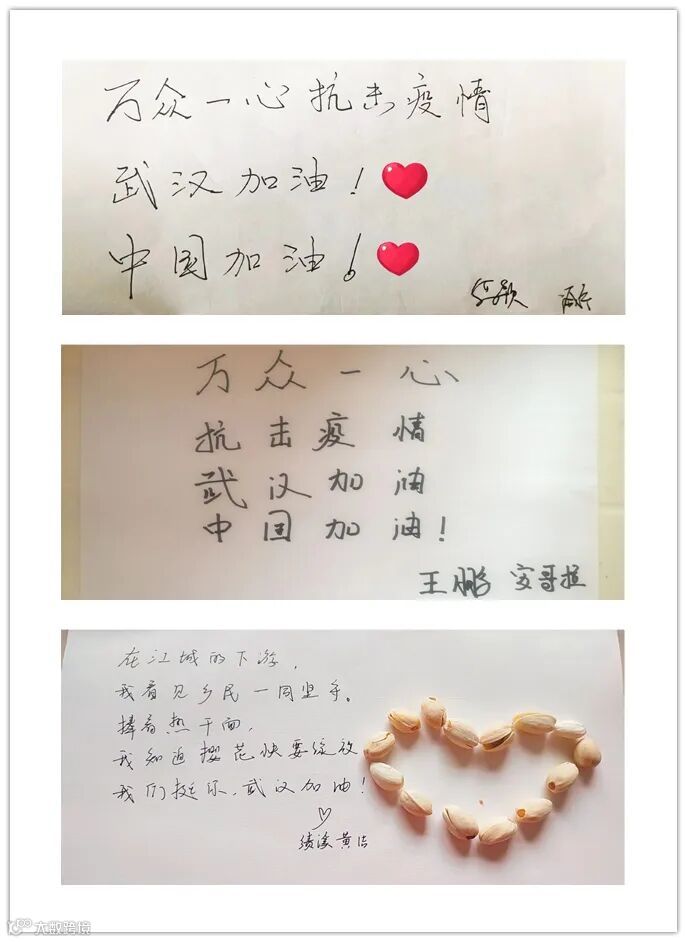 万众一心抗击疫情
武汉加油！
中国加油！
万众一心
抗击疫情
武汉加油
中国加油！
王鹏 安哥拉
在江城的下游，
我看见乡民一同坚守。
捧着热干面，
我知道樱花快要绽放
我们挺你，武汉加油！
绩溪 黄
大数跨境